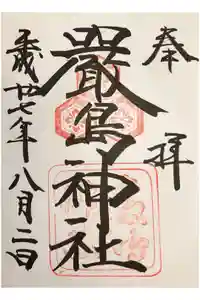 奉拝
嚴島神社
平成廿七年八月二日